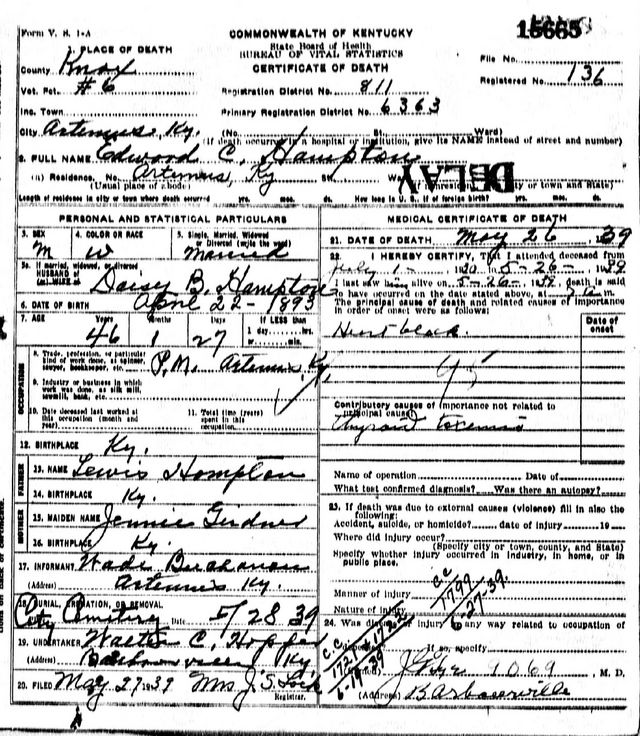 Form V. S. 1-A
COMMONWEALTH OF KENTUCKY
State Board of Health
BUREAU OF VITAL STATISTICS
CERTIFICATE OF DEATH
15665
1. PLACE OF DEATH
County Knox
Vot. Pct. #6
Inc. Town
City Artemus, Ky.
File No.
Registered No. 136
Registration District No. 811
Primary Registration District No. 6363
(No. St. Ward)
(If death occurred in a hospital or institution, give its NAME instead of street and number)
2. FULL NAME Edward C. Hampton
(a) Residence. No. Artemus, Ky St.
(Usual place of abode) (If nonresident, city or town and State)
DELAY
Length of residence in city or town where death occurred yrs. mos. ds. How long in U. S., if of foreign birth? yrs. mos. ds.
PERSONAL AND STATISTICAL PARTICULARS
3. SEX M
4. COLOR OR RACE W
5. Single, Married, Widowed or Divorced (write the word) Married
5a. If married, widowed, or divorced
HUSBAND of
(or) WIFE of Daisy B. Hampton
6. DATE OF BIRTH April 22-1893
7. AGE Years Months Days If LESS than
46 1 27 1 day, hrs. or min.
OCCUPATION
8. Trade, profession, or particular kind of work done, as spinner, sawyer, bookkeeper, etc. P.M. Artemus, Ky.
9. Industry or business in which work was done, as silk mill, sawmill, bank, etc.
10. Date deceased last worked at this occupation (month and year)
11. Total time (years) spent in this occupation
12. BIRTHPLACE Ky.
FATHER
13. NAME Lewis Hampton
14. BIRTHPLACE Ky.
MOTHER
15. MAIDEN NAME Jennie
16. BIRTHPLACE Ky.
17. INFORMANT Wade
(Address) Artemus Ky.
18. BURIAL, CREMATION, OR REMOVAL
Cemetery Date 5/28 39
19. UNDERTAKER Walter C. Hopper
(Address) Barbourville Ky
20. FILED May 27 1939 Mrs J. S.
Registrar.
MEDICAL CERTIFICATE OF DEATH
21. DATE OF DEATH May 26, 1939
22. I HEREBY CERTIFY, That I attended deceased from
July 1- to 5-26-1939
I last saw him alive on 5-26-1939, death is said
to have occurred on the date stated above, at m.
The principal cause of death and related causes of importance in order of onset were as follows:
Date of onset
Heart block
95
Contributory causes of importance not related to principal cause:
Name of operation Date of
What test confirmed diagnosis? Was there an autopsy?
23. If death was due to external causes (violence) fill in also the following:
Accident, suicide, or homicide? date of injury 19
Where did injury occur?
(Specify city or town, county, and State)
Specify whether injury occurred in industry, in home, or in public place.
Manner of injury
Nature of injury
C.C
1799
6-27-39.
24. Was disease or injury in any way related to occupation of deceased?
If so, specify
C.C
6-19-39
(Signed) 1069, M. D.
(Address) Barbourville